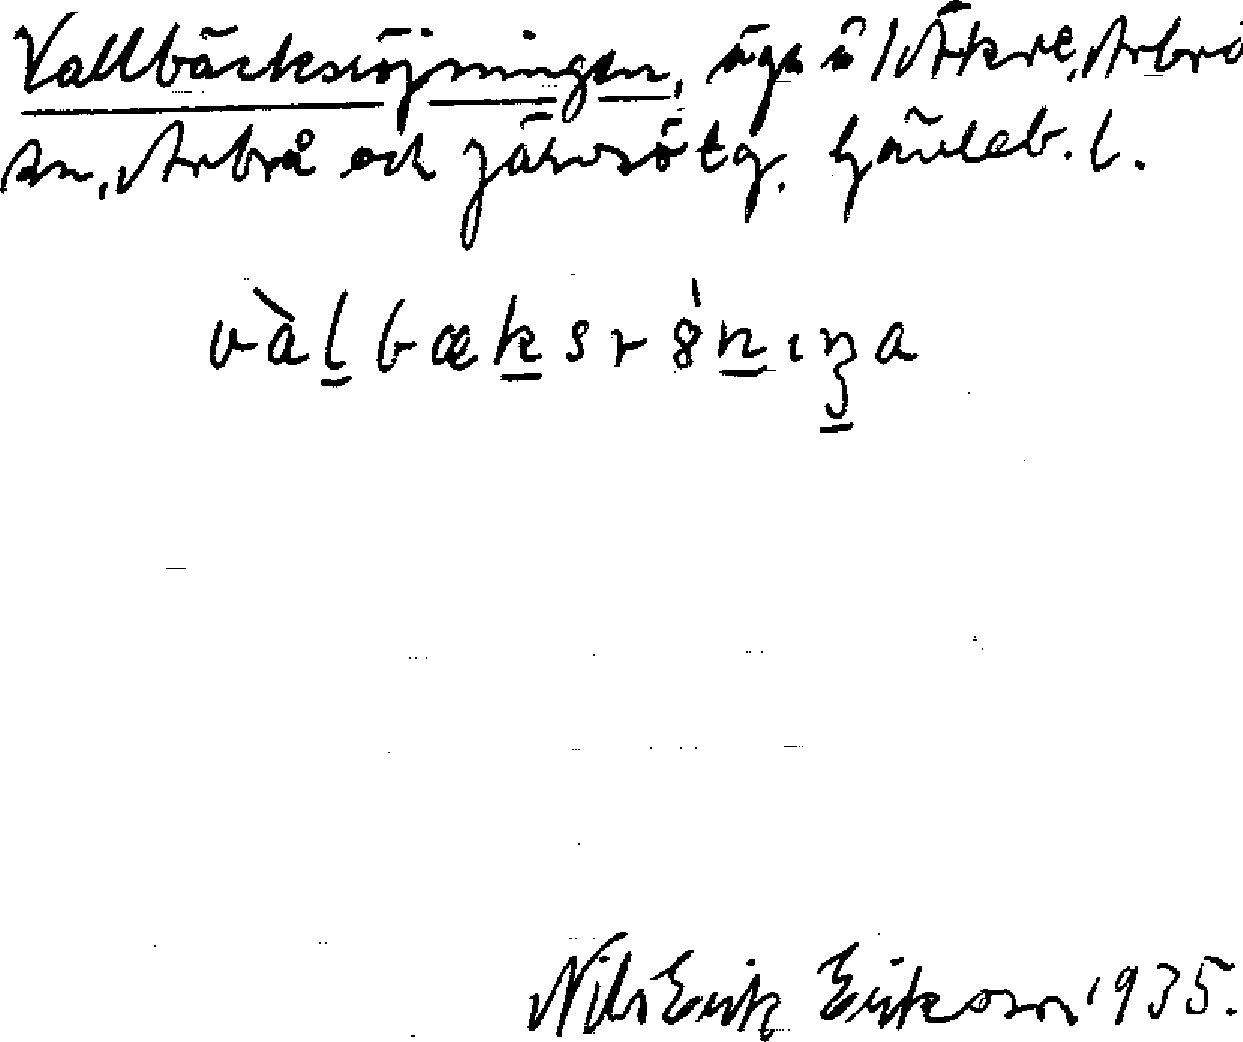 Vallbäcksröjningen, ägn å Åkre, Arbrå
sn, Arbrå och Järvsö tg. Gävleb. l.
vàl̠bæk̠srȯ́n̠ıŋ̠a
Nils Erik Erikson 1935.